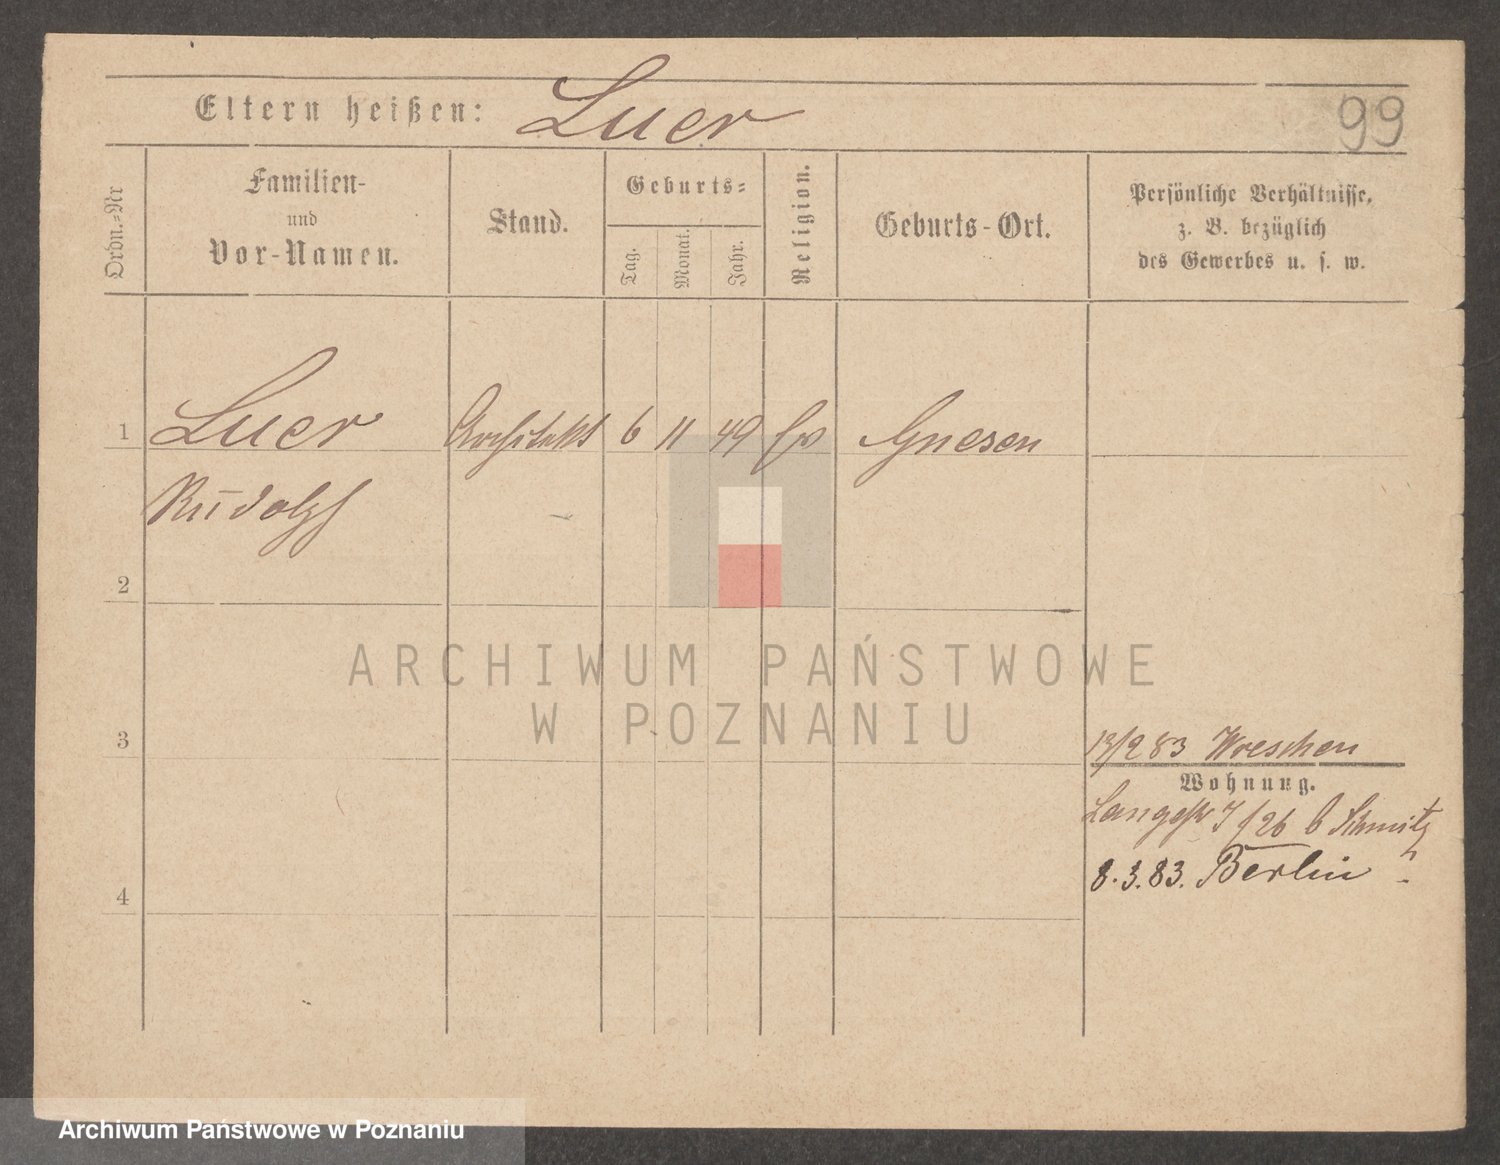 Eltern heißen: Luer
99
Ordn.=Nr
Familien-
und
Vor-Namen.
Stand.
Geburts=
Tag.
Monat.
Jahr.
Religion.
Geburts-Ort.
Persönliche Verhältnisse,
z. B. bezüglich
des Gewerbes u. s. w.
1 Luer Architekt 6 11 49 Ev Gnesen
Rudolph
2
ARCHIWUM PAŃSTWOWE
W POZNANIU
3
13/2 83 Wreschen
Wohnung.
Langestr 7/26 b Schmitz
8.3.83. Berlin ?
4
Archiwum Państwowe w Poznaniu